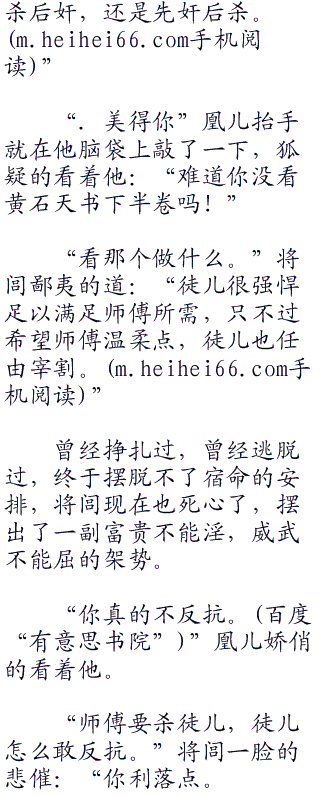 杀后奸，还是先奸后杀。
(m.heihei66.com手机阅
读)”
“．美得你”凰儿抬手
就在他脑袋上敲了一下，狐
疑的看着他：“难道你没看
黄石天书下半卷吗！”
“看那个做什么。”将
闾鄙夷的道：“徒儿很强悍
足以满足师傅所需，只不过
希望师傅温柔点，徒儿也任
由宰割。(m.heihei66.com手
机阅读)”
曾经挣扎过，曾经逃脱
过，终于摆脱不了宿命的安
排，将闾现在也死心了，摆
出了一副富贵不能淫，威武
不能屈的架势。
“你真的不反抗。(百度
“有意思书院”)”凰儿娇俏
的看着他。
“师傅要杀徒儿，徒儿
怎么敢反抗。”将闾一脸的
悲催：“你利落点。